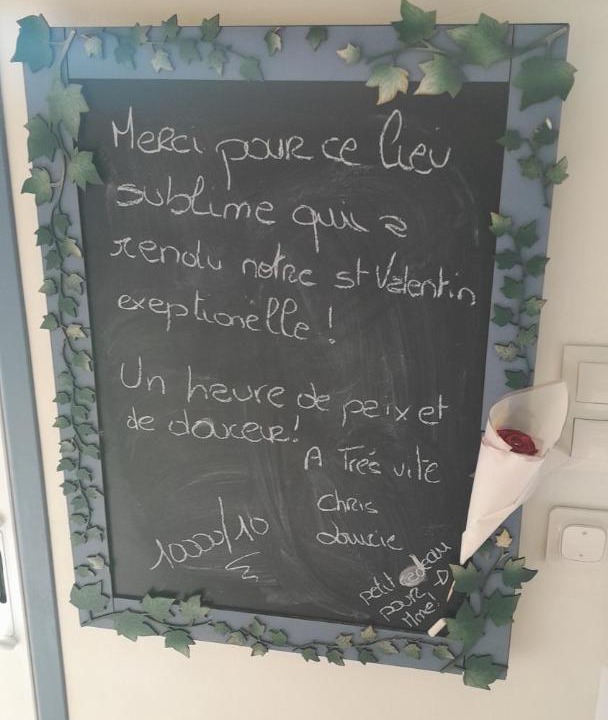 Merci pour ce lieu
sublime qui a
rendu notre st Valentin
exeptionelle !
Un heure de paix et
de douceur!
A Trés vite
Chris
10000/10
petit
pour
Mme!